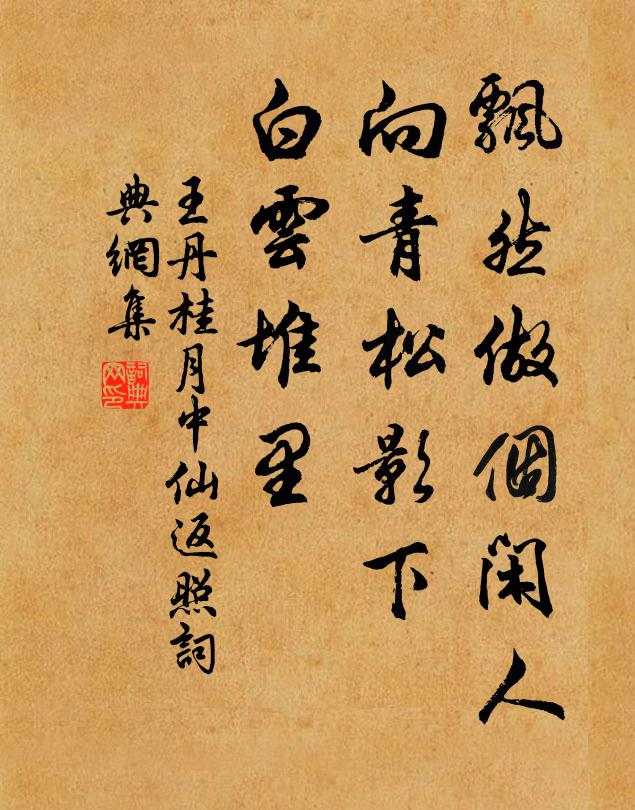 飄然做個閑人
向青松影下
白雲堆里
王丹桂月中仙返照詞
典網集
詞典
网印